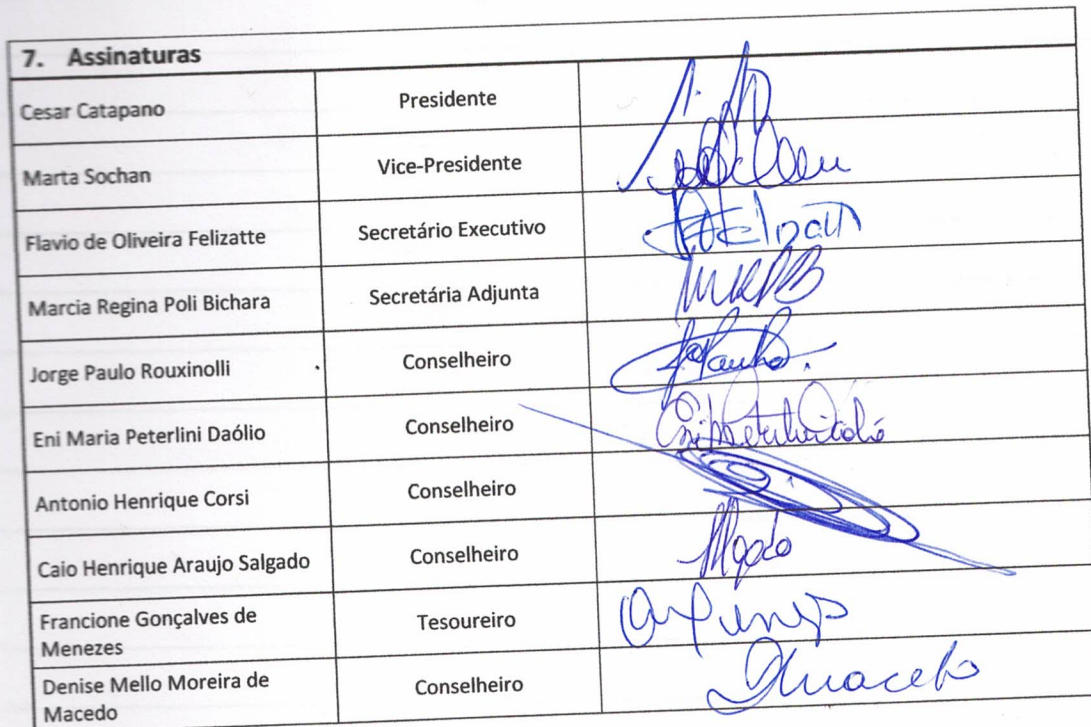 7. Assinaturas
Cesar Catapano Presidente
Marta Sochan Vice-Presidente
Flavio de Oliveira Felizatte Secretário Executivo
Marcia Regina Poli Bichara Secretária Adjunta
Jorge Paulo Rouxinolli Conselheiro
Eni Maria Peterlini Daólio Conselheiro
Antonio Henrique Corsi Conselheiro
Caio Henrique Araujo Salgado Conselheiro
Francione Gonçalves de
Menezes Tesoureiro
Denise Mello Moreira de
Macedo Conselheiro